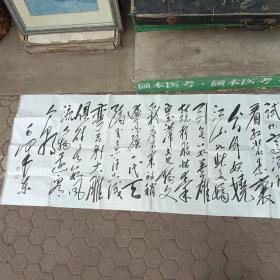 硕本医考·硕本医考
看红装素裹
分外妖娆
江山如此多娇
引无数英雄
竞折腰惜秦
皇汉武略输文
采唐宗宋祖稍
逊风骚一代天
骄成吉思汗只识
弯弓射大雕
俱往矣数风
流人物还看
今朝
毛泽东